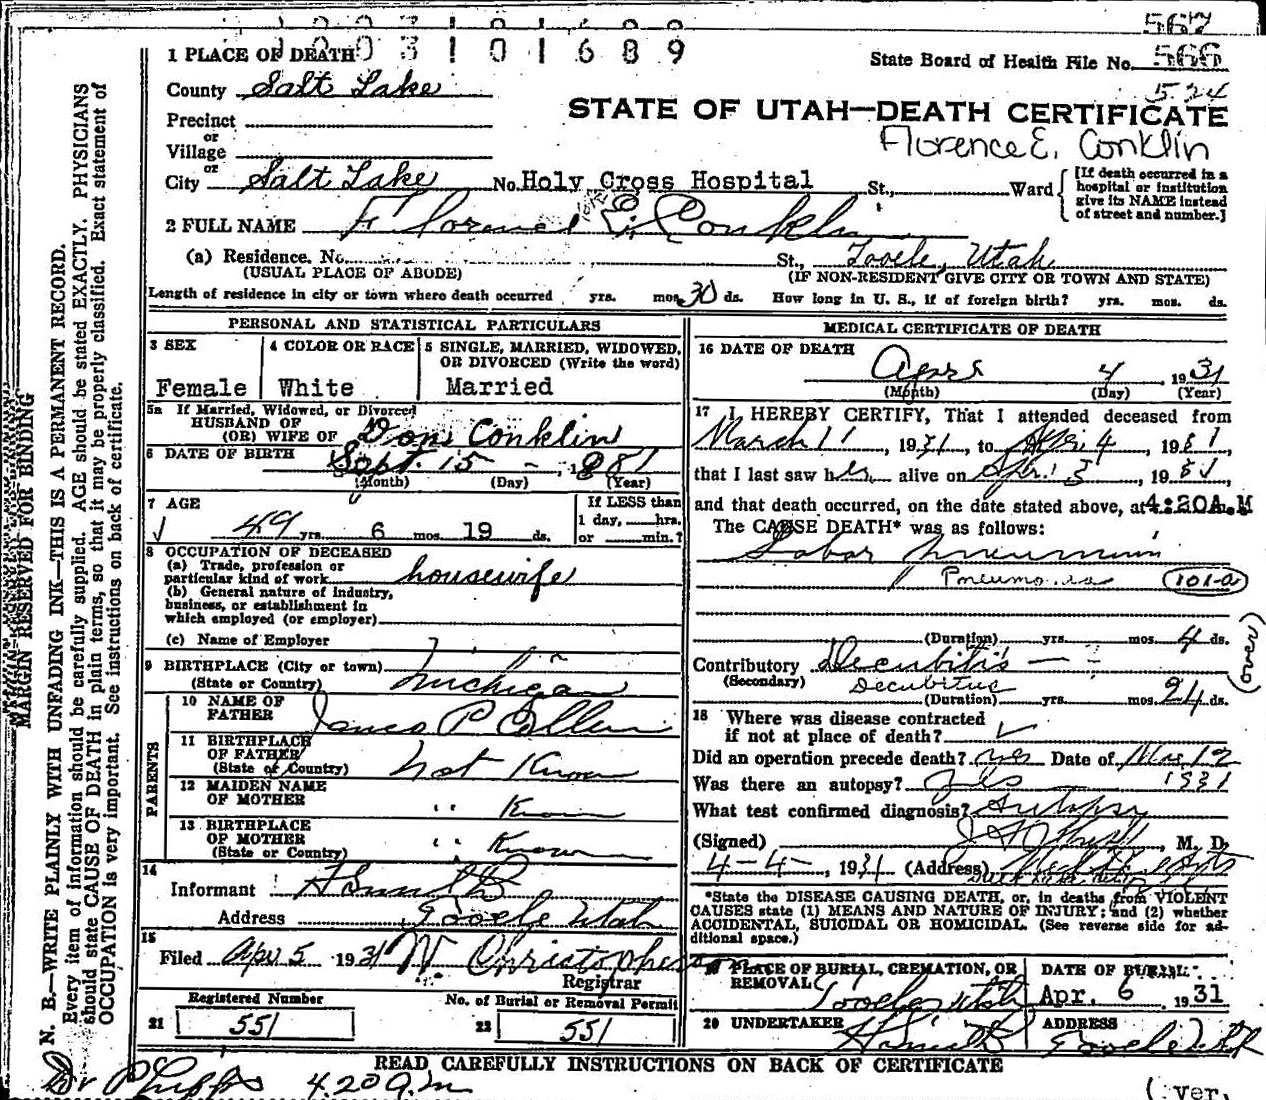 567
1003101689
State Board of Health File No. 566
5.24
1 PLACE OF DEATH
County Salt Lake
STATE OF UTAH—DEATH CERTIFICATE
Precinct
or
Village
Florence E. Conklin
or
City Salt Lake No. Holy Cross Hospital St., Ward
[If death occurred in a hospital or institution give its NAME instead of street and number.]
2 FULL NAME Florence E. Conklin
(a) Residence. No. St., Tooele, Utah
(USUAL PLACE OF ABODE) (IF NON-RESIDENT GIVE CITY OR TOWN AND STATE)
Length of residence in city or town where death occurred yrs. mos. 30 ds. How long in U. S., if of foreign birth? yrs. mos. ds.
PERSONAL AND STATISTICAL PARTICULARS
3 SEX 4 COLOR OR RACE 5 SINGLE, MARRIED, WIDOWED, OR DIVORCED (Write the word)
Female White Married
5a If Married, Widowed, or Divorced
HUSBAND OF
(OR) WIFE OF Don Conklin
6 DATE OF BIRTH Sept. 15 - , 1881
(Month) (Day) (Year)
7 AGE If LESS than
49 yrs. 6 mos. 19 ds. 1 day, hrs.
or min.?
8 OCCUPATION OF DECEASED
(a) Trade, profession or
particular kind of work housewife
(b) General nature of industry,
business, or establishment in
which employed (or employer)
(c) Name of Employer
9 BIRTHPLACE (City or town)
(State or Country) Michigan
PARENTS
10 NAME OF
FATHER James P
11 BIRTHPLACE
OF FATHER
(State or Country) not Known
12 MAIDEN NAME
OF MOTHER " Known
13 BIRTHPLACE
OF MOTHER
(State or Country) " Known
14
Informant
Address Tooele Utah
15
Filed Apr 5 1931 W. Christopherson
Registrar
Registered Number No. of Burial or Removal Permit
21 551 22 551
MEDICAL CERTIFICATE OF DEATH
16 DATE OF DEATH
April 4, 1931
(Month) (Day) (Year)
17 I HEREBY CERTIFY, That I attended deceased from
March 11, 1931, to Apr 4 1931,
that I last saw her alive on Apr. 3, 1931
and that death occurred, on the date stated above, at 4:20A.M
The CAUSE DEATH* was as follows:
Lobar Pneumonia
Pneumonia 101-a
(Duration) yrs. mos. 4 ds.
Contributory Decubitis
(Secondary) Decubitus
(Duration) yrs. mos. 24 ds.
(over)
18 Where was disease contracted
if not at place of death?
Did an operation precede death? yes Date of Mar. 12
1931
Was there an autopsy? yes
What test confirmed diagnosis? Autopsy
(Signed) , M. D.
4-4-, 1931 (Address)
*State the DISEASE CAUSING DEATH, or, in deaths from VIOLENT
CAUSES state (1) MEANS AND NATURE OF INJURY; and (2) whether
ACCIDENTAL, SUICIDAL OR HOMICIDAL. (See reverse side for ad-
ditional space.)
19 PLACE OF BURIAL, CREMATION, OR DATE OF BURIAL
REMOVAL Tooele, Utah Apr. 6, 1931
20 UNDERTAKER ADDRESS
Tooele Utah
READ CAREFULLY INSTRUCTIONS ON BACK OF CERTIFICATE
Dr Phipps 4.20 a.m
MARGIN RESERVED FOR BINDING
N. B.—WRITE PLAINLY WITH UNFADING INK—THIS IS A PERMANENT RECORD.
Every item of information should be carefully supplied. AGE should be stated EXACTLY. PHYSICIANS
should state CAUSE OF DEATH in plain terms, so that it may be properly classified. Exact statement of
OCCUPATION is very important. See instructions on back of certificate.